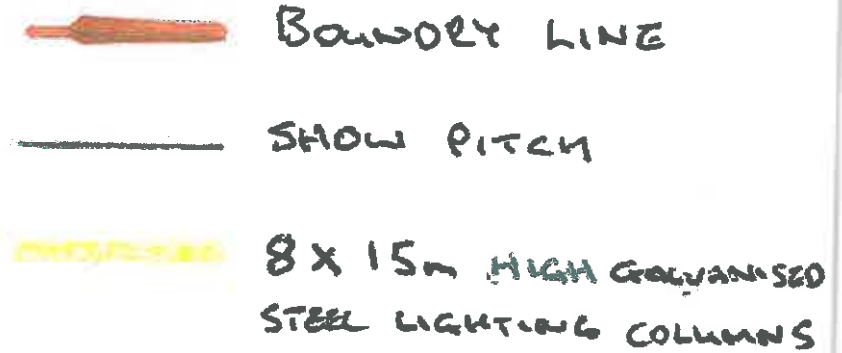 BOUNDRY LINE
SHOW PITCH
8 X 15m HIGH GALVANISED
STEEL LIGHTING COLUMNS